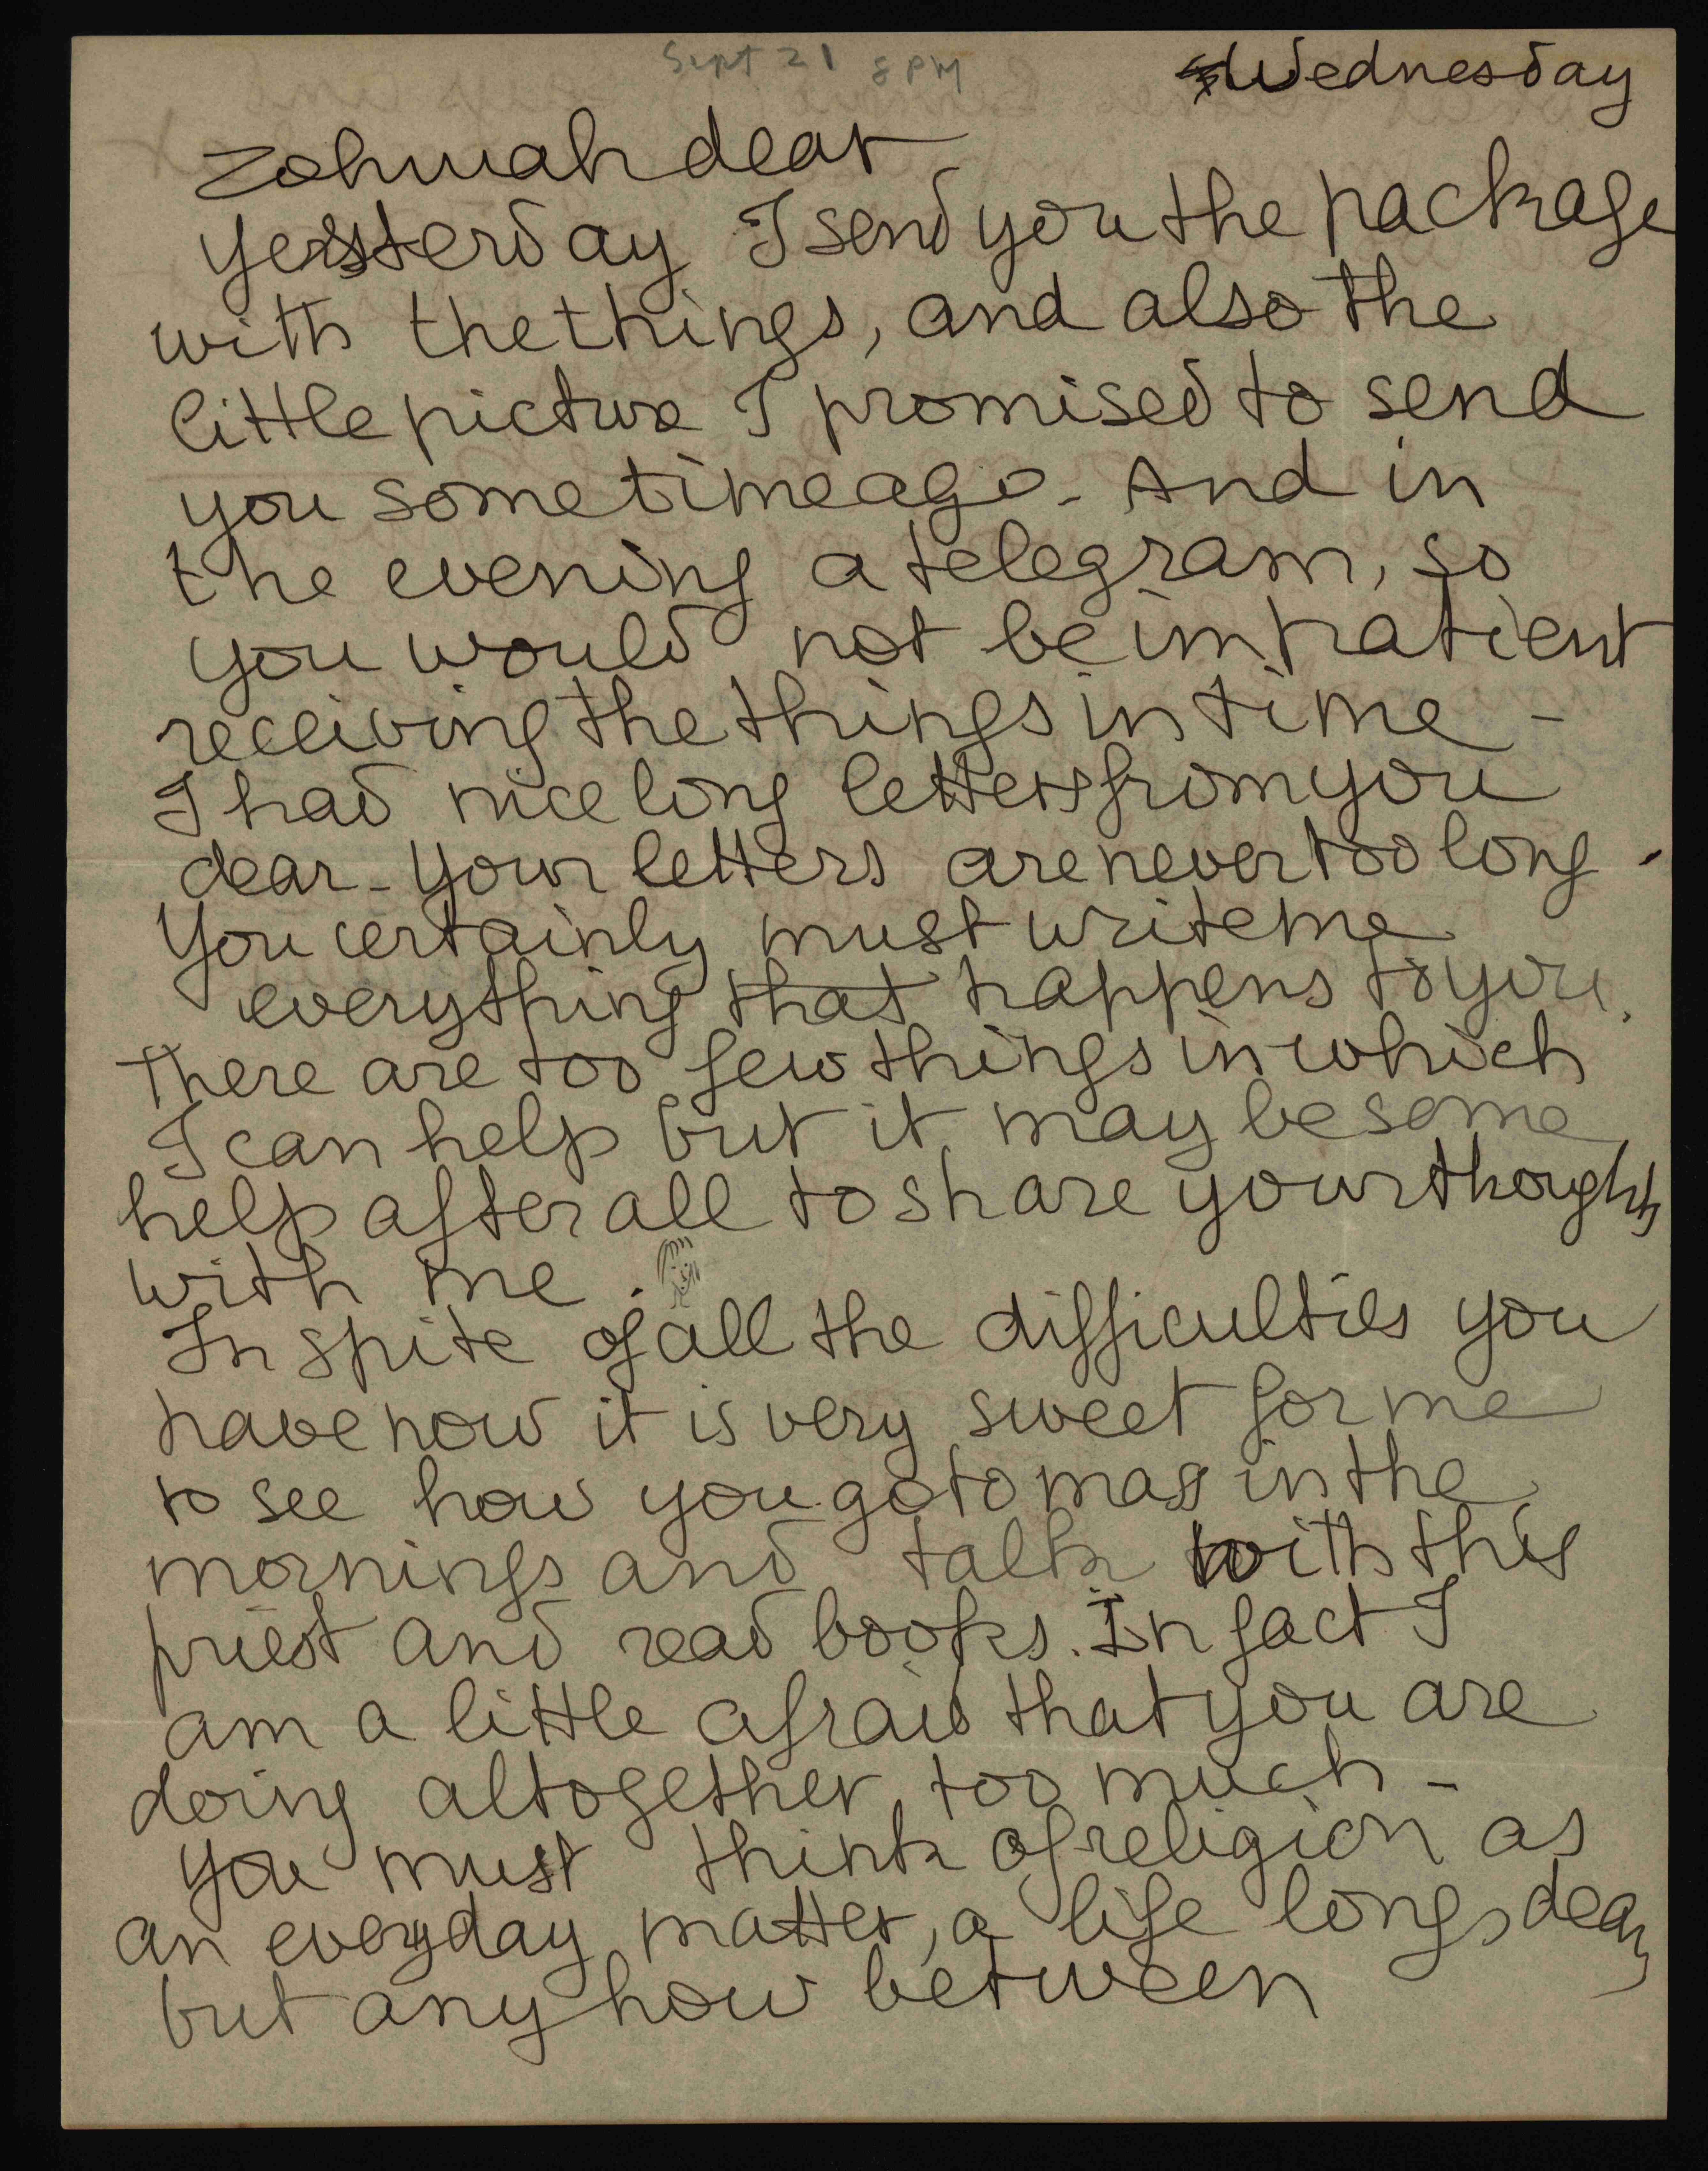 Sept 21 8 PM
Wednesday
Zohmah dear
Yersterday I send you the package
with the things, and also the
little picture I promised to send
you some time ago - And in
the evening a telegram, so
you would not be impatient
receiving the things in time -
I had nice long letters from you
dear - your letters are never too long -
You certainly must write me
everything that happens to you.
There are too few things in which
I can help but it may be some
help after all to share your thoughts
with me.
In spite of all the difficulties you
have now it is very sweet for me
to see how you go to mass in the
mornings and talk with this
priest and read books. In fact I
am a little afraid that you are
doing altogether too much -
you must think of religion as
an everyday matter, a life long, dear,
but anyhow between